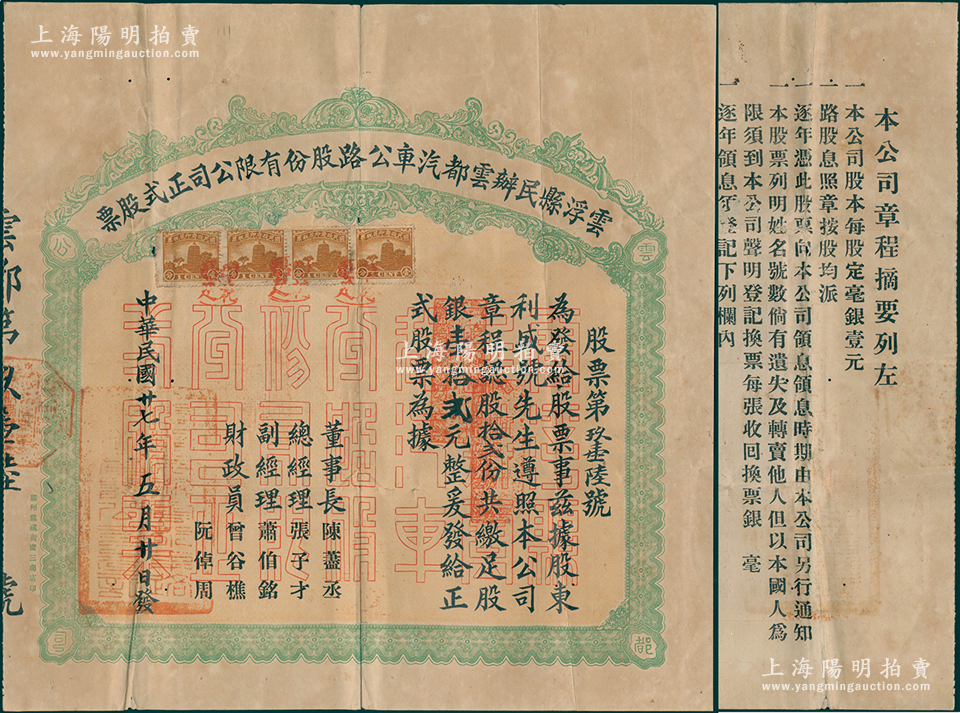 上海陽明拍賣
www.yangmingauction.com
雲浮縣民辦雲都汽車公路股份有限公司正式股票
雲
都
公
司
1 CENT
1 CENT
1 CENT
1 CENT
股票第玖壹陸號
為發給股票事茲據股東
利成號先生遵照本公司
章程認股拾弍份共繳足股
銀壹拾弍元整爰發給正
式股票為據
董事長陳藎丞
總經理張子才
副經理蕭伯銘
財政員曾谷樵
阮倬周
中華民國廿七年五月廿日發
雲都第玖壹陸號
上海陽明拍賣
www.yangmingauction.com
本公司章程摘要列左
一 本公司股本每股定毫銀壹元
一 路股息照章按股均派
一 逐年憑此股票向本公司領息領息時期由本公司另行通知
一 本股票列明姓名號數倘有遺失及轉賣他人但以本國人為
限須到本公司聲明登記換票每張收回換票銀 毫
一 逐年領息須登記下列欄內
上海陽明拍賣
www.yangmingauction.com